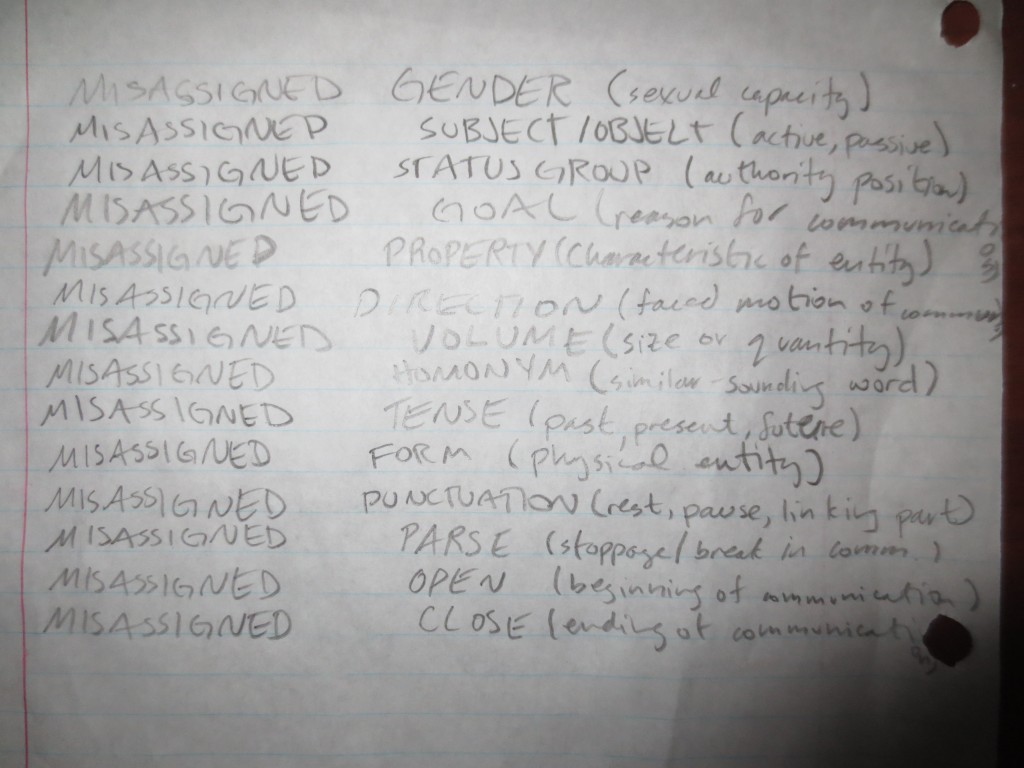 MISASSIGNED GENDER (sexual capacity)
MISASSIGNED SUBJECT/OBJECT (active, passive)
MISASSIGNED STATUS GROUP (authority position)
MISASSIGNED GOAL (reason for communication)
MISASSIGNED PROPERTY (characteristic of entity)
MISASSIGNED DIRECTION (faced motion of commun)
MISASSIGNED VOLUME (size or quantity)
MISASSIGNED HOMONYM (similar-sounding word)
MISASSIGNED TENSE (past, present, future)
MISASSIGNED FORM (physical entity)
MISASSIGNED PUNCTUATION (rest, pause, linking part)
MISASSIGNED PARSE (stoppage/break in comm.)
MISASSIGNED OPEN (beginning of communication)
MISASSIGNED CLOSE (ending of communication)